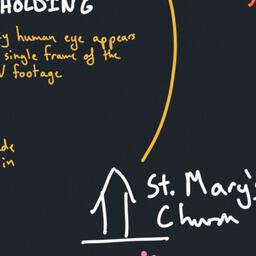 HOLDING
y human eye appears
single frame of the
V footage
de
in
St. Mary's
Church